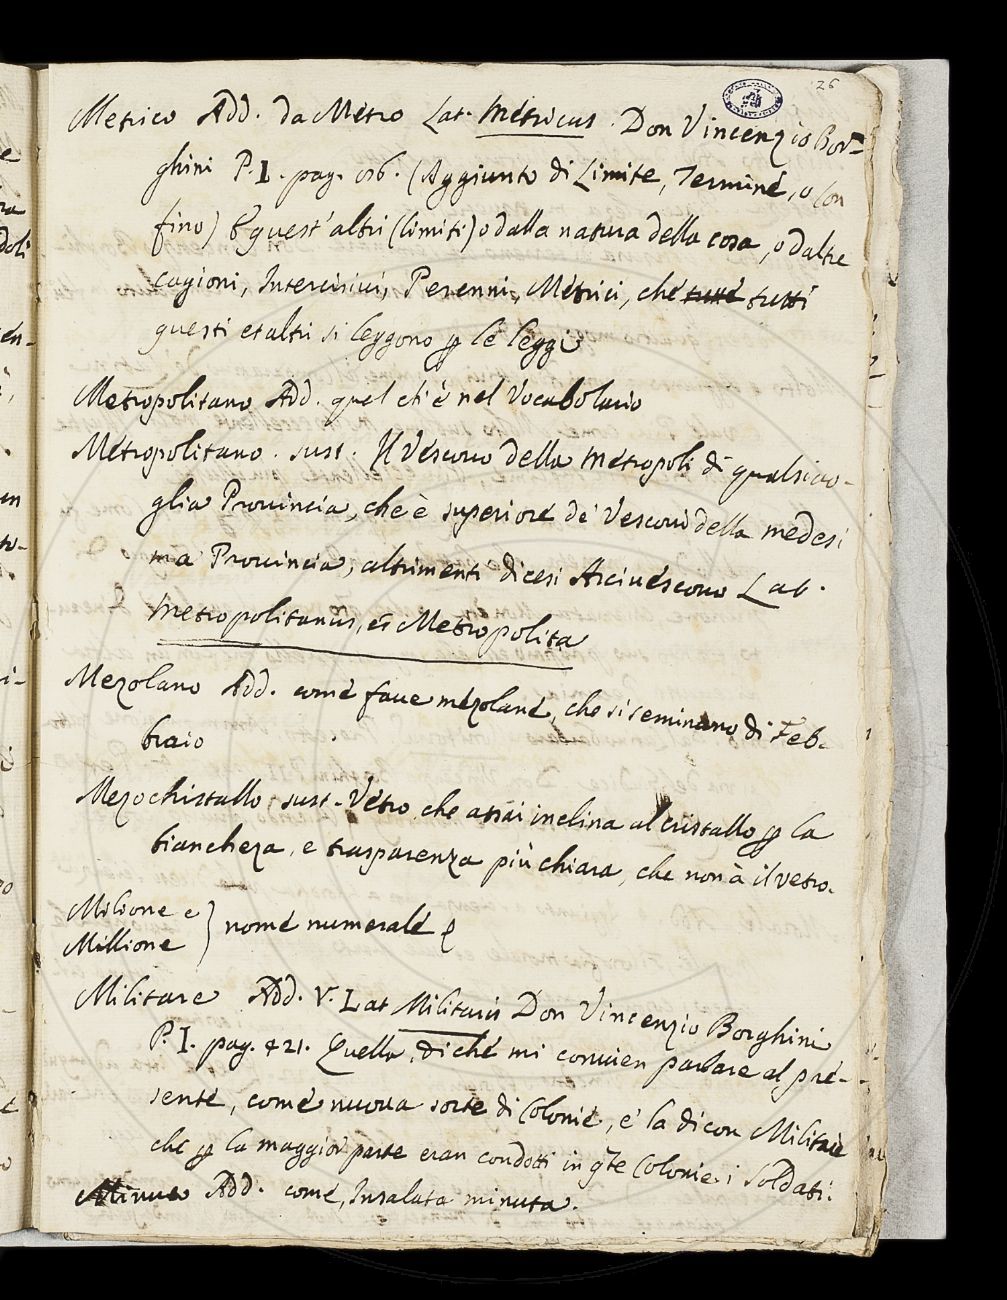 26
Metrico Add. da Metro Lat. Metricus. Don Vincenzio Bor=
ghini P. I. pag. (Aggiunto di Limite, Termine, o Con
fino) E quest' altri (limiti) o dalla natura della cosa, o d'altre
cagioni, Intercisivi, Perenni, Metrici, che tutte tutti
questi et altri si leggono ꝑ le leggi
Metropolitano Add. quel ch'è nel Vocabolario
Metropolitano. sust. Il Vescovo della Metropoli di qualsivo-
glia Provincia, che è superiore de' Vescovi della medesi
ma Provincia, altrimenti dicesi Arcivescovo Lat.
Metropolitanus, et Metropolita
Mezolano Add. come fave mezolane, che si seminano di Feb-
braio
Mezochistallo sust. Vetro, che assai inclina al cristallo ꝑ la
biancheza, e trasparenza più chiara, che non à il vetro.
Milione e
Millione } nome numerale
Militare Add. V. Lat Militaris Don Vincenzio Borghini
P. I. pag. 421. Quello, di che mi convien parlare al pre-
sente, come nuova sorte di Colonie, e la dicon Militare
che ꝑ la maggior parte eran condotti in qste Colonie i Soldati.
Minuto Add. come, Insalata minuta.